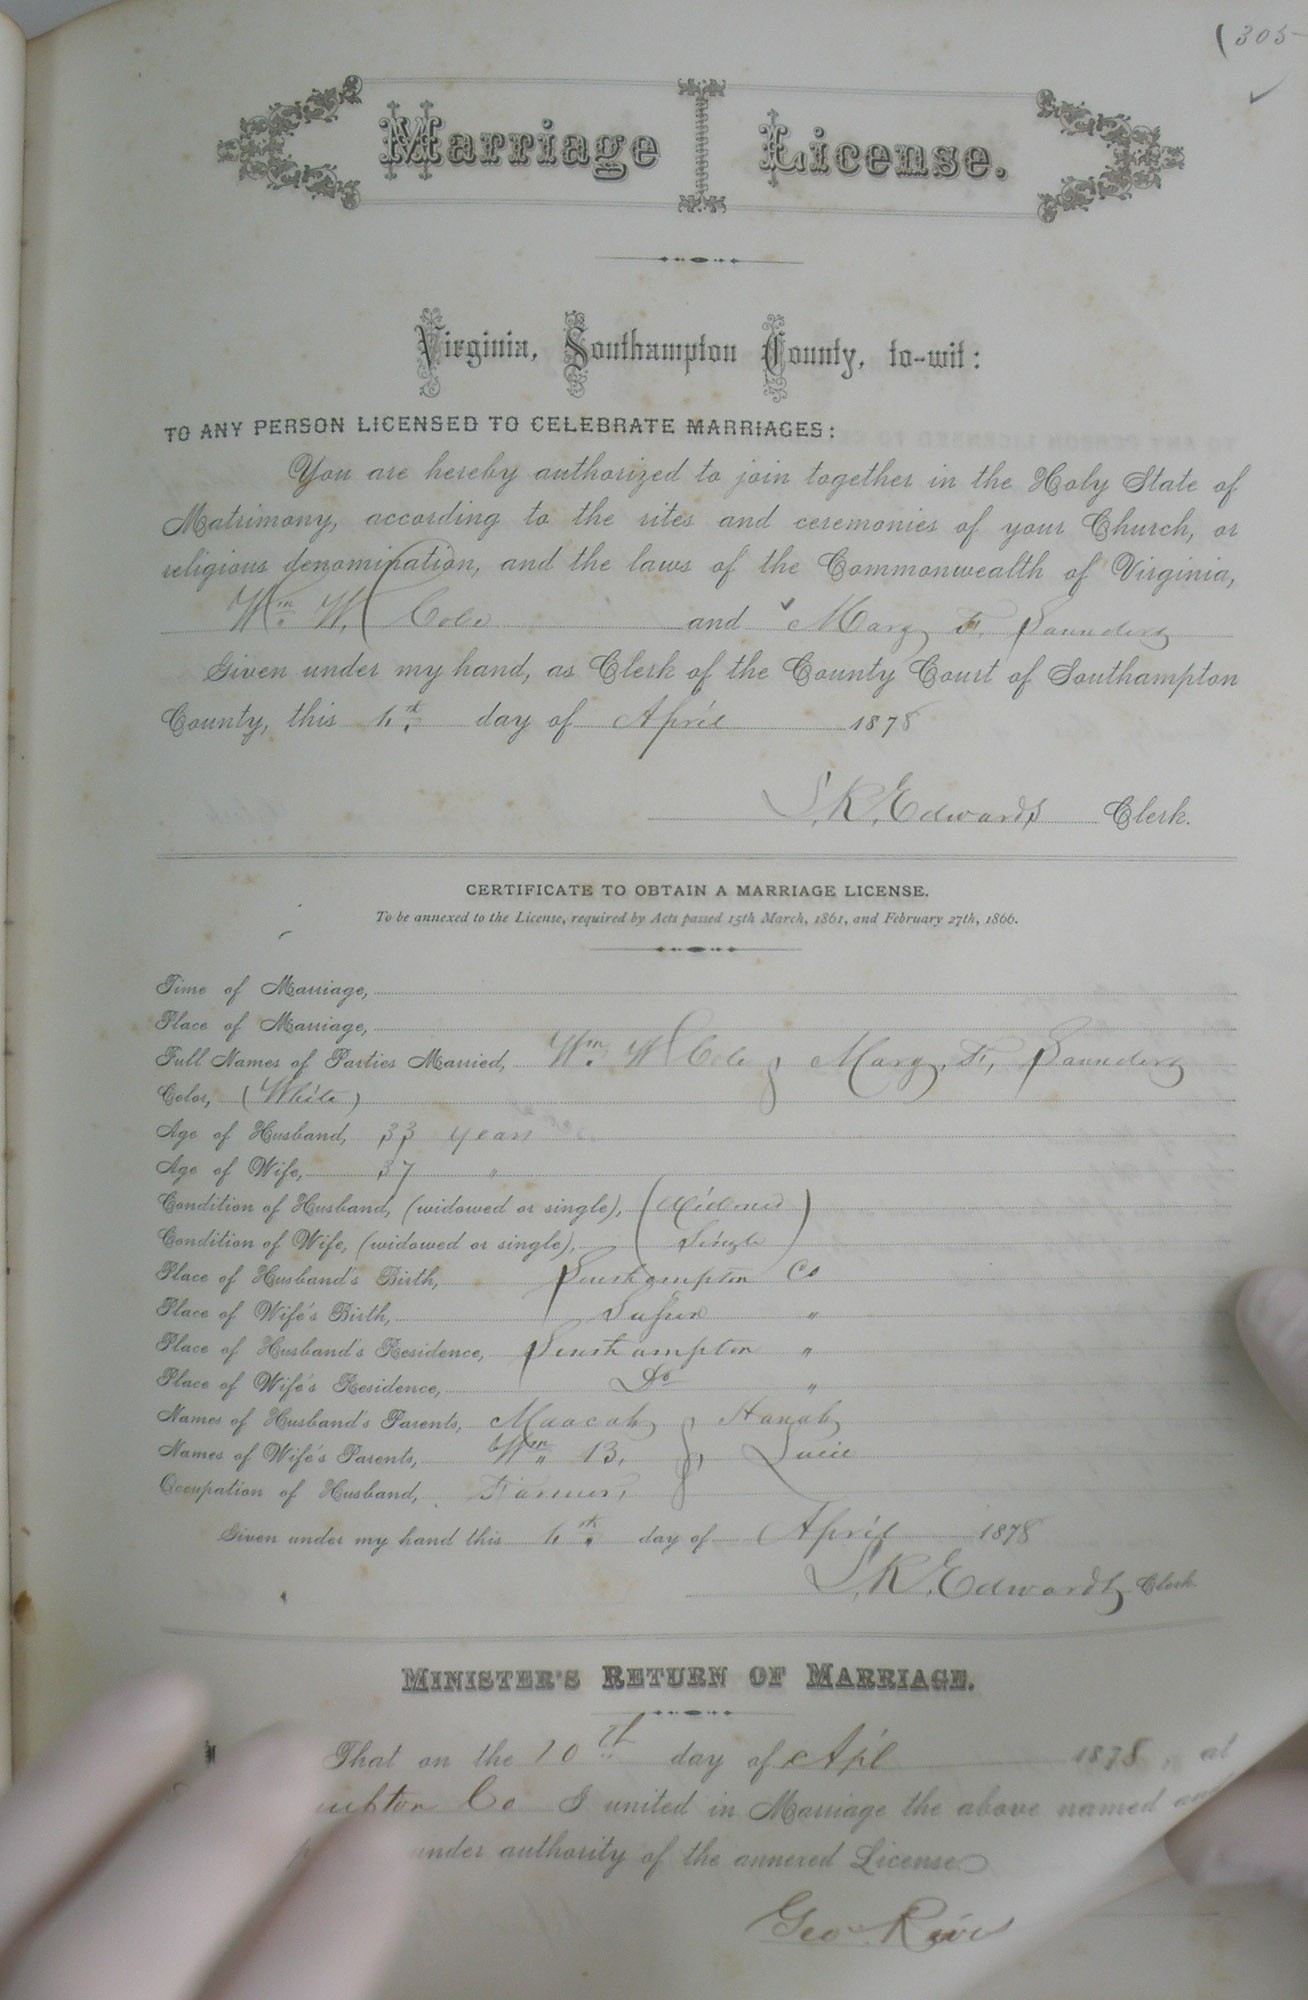 (305
Marriage License.
Virginia, Southampton County, to-wit:
TO ANY PERSON LICENSED TO CELEBRATE MARRIAGES:
You are hereby authorized to join together in the Holy State of
Matrimony, according to the rites and ceremonies of your Church, or
religious denomination, and the laws of the Commonwealth of Virginia,
Wm. W. Cole and Mary F. Saunders
Given under my hand, as Clerk of the County Court of Southampton
County, this day of April 1878
S. K. Edwards Clerk.
CERTIFICATE TO OBTAIN A MARRIAGE LICENSE.
To be annexed to the License, required by Acts passed 15th March, 1861, and February 27th, 1866.
Time of Marriage,
Place of Marriage,
Full Names of Parties Married, Wm. W Cole & Mary F, Saunders
Color, (White)
Age of Husband, 33 years
Age of Wife, 37 "
Condition of Husband, (widowed or single), (Widowed)
Condition of Wife, (widowed or single), (Single)
Place of Husband's Birth, Southampton Co
Place of Wife's Birth, "
Place of Husband's Residence, Southampton "
Place of Wife's Residence, Do "
Names of Husband's Parents, & Hanah
Names of Wife's Parents, Wm B. &
Occupation of Husband, Farmer,
Given under my hand this day of April 1878
S. K. Edwards Clerk.
MINISTER'S RETURN OF MARRIAGE.
That on the 10th day of Apl 1878, at
Co I united in Marriage the above named
under authority of the annexed License
Geo